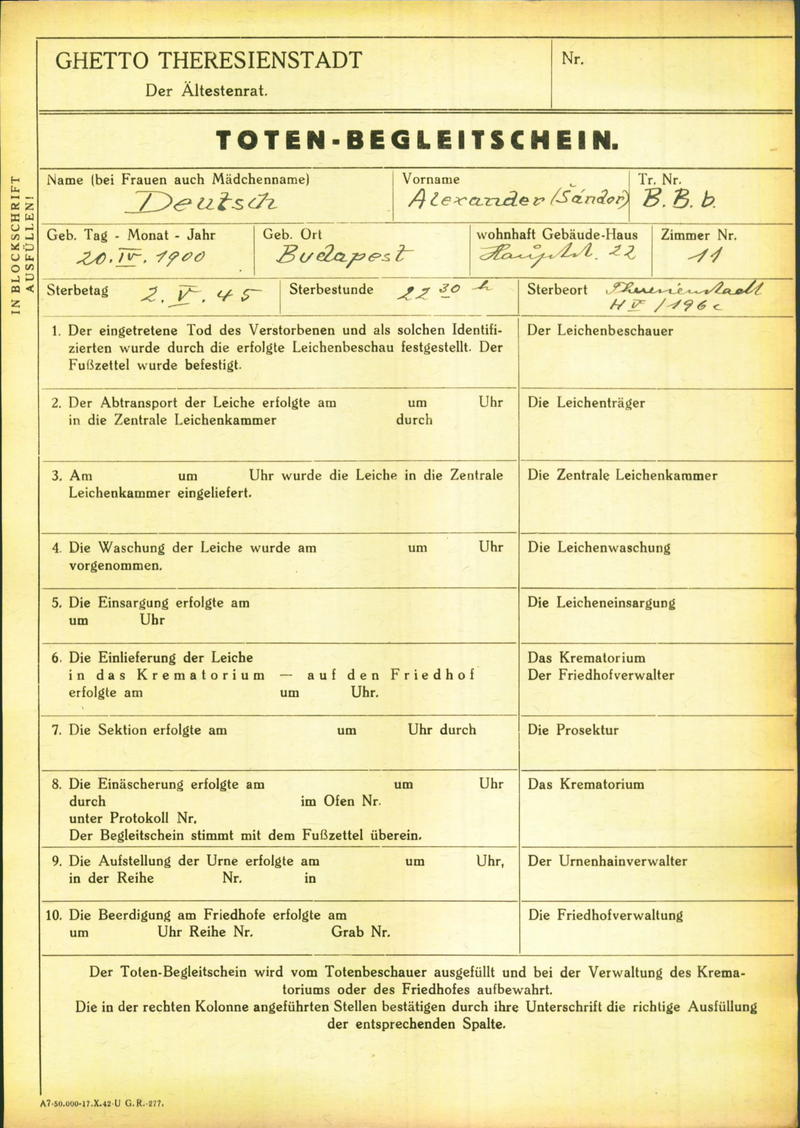 GHETTO THERESIENSTADT
Der Ältestenrat.
Nr.
IN BLOCKSCHRIFT
AUSFÜLLEN!
TOTEN-BEGLEITSCHEIN.
Name (bei Frauen auch Mädchenname) Vorname Tr. Nr.
Deutsch Alexander (Sándor) B. B. b.
Geb. Tag - Monat - Jahr Geb. Ort wohnhaft Gebäude-Haus Zimmer Nr.
20. IV. 1900 Budapest Hauptst. 22 11
Sterbetag 2. V. 45 Sterbestunde 22 30 h Sterbeort Theresienstadt
H V /196 c
1. Der eingetretene Tod des Verstorbenen und als solchen Identifi-
zierten wurde durch die erfolgte Leichenbeschau festgestellt. Der
Fußzettel wurde befestigt.
Der Leichenbeschauer
2. Der Abtransport der Leiche erfolgte am um Uhr
in die Zentrale Leichenkammer durch
Die Leichenträger
3. Am um Uhr wurde die Leiche in die Zentrale
Leichenkammer eingeliefert.
Die Zentrale Leichenkammer
4. Die Waschung der Leiche wurde am um Uhr
vorgenommen.
Die Leichenwaschung
5. Die Einsargung erfolgte am
um Uhr
Die Leicheneinsargung
6. Die Einlieferung der Leiche
in das Krematorium — auf den Friedhof
erfolgte am um Uhr.
Das Krematorium
Der Friedhofverwalter
7. Die Sektion erfolgte am um Uhr durch
Die Prosektur
8. Die Einäscherung erfolgte am um Uhr
durch im Ofen Nr.
unter Protokoll Nr.
Der Begleitschein stimmt mit dem Fußzettel überein.
Das Krematorium
9. Die Aufstellung der Urne erfolgte am um Uhr,
in der Reihe Nr. in
Der Urnenhainverwalter
10. Die Beerdigung am Friedhofe erfolgte am
um Uhr Reihe Nr. Grab Nr.
Die Friedhofverwaltung
Der Toten-Begleitschein wird vom Totenbeschauer ausgefüllt und bei der Verwaltung des Krema-
toriums oder des Friedhofes aufbewahrt.
Die in der rechten Kolonne angeführten Stellen bestätigen durch ihre Unterschrift die richtige Ausfüllung
der entsprechenden Spalte.
A7-50.000-17.X.42-U G.R.-277.